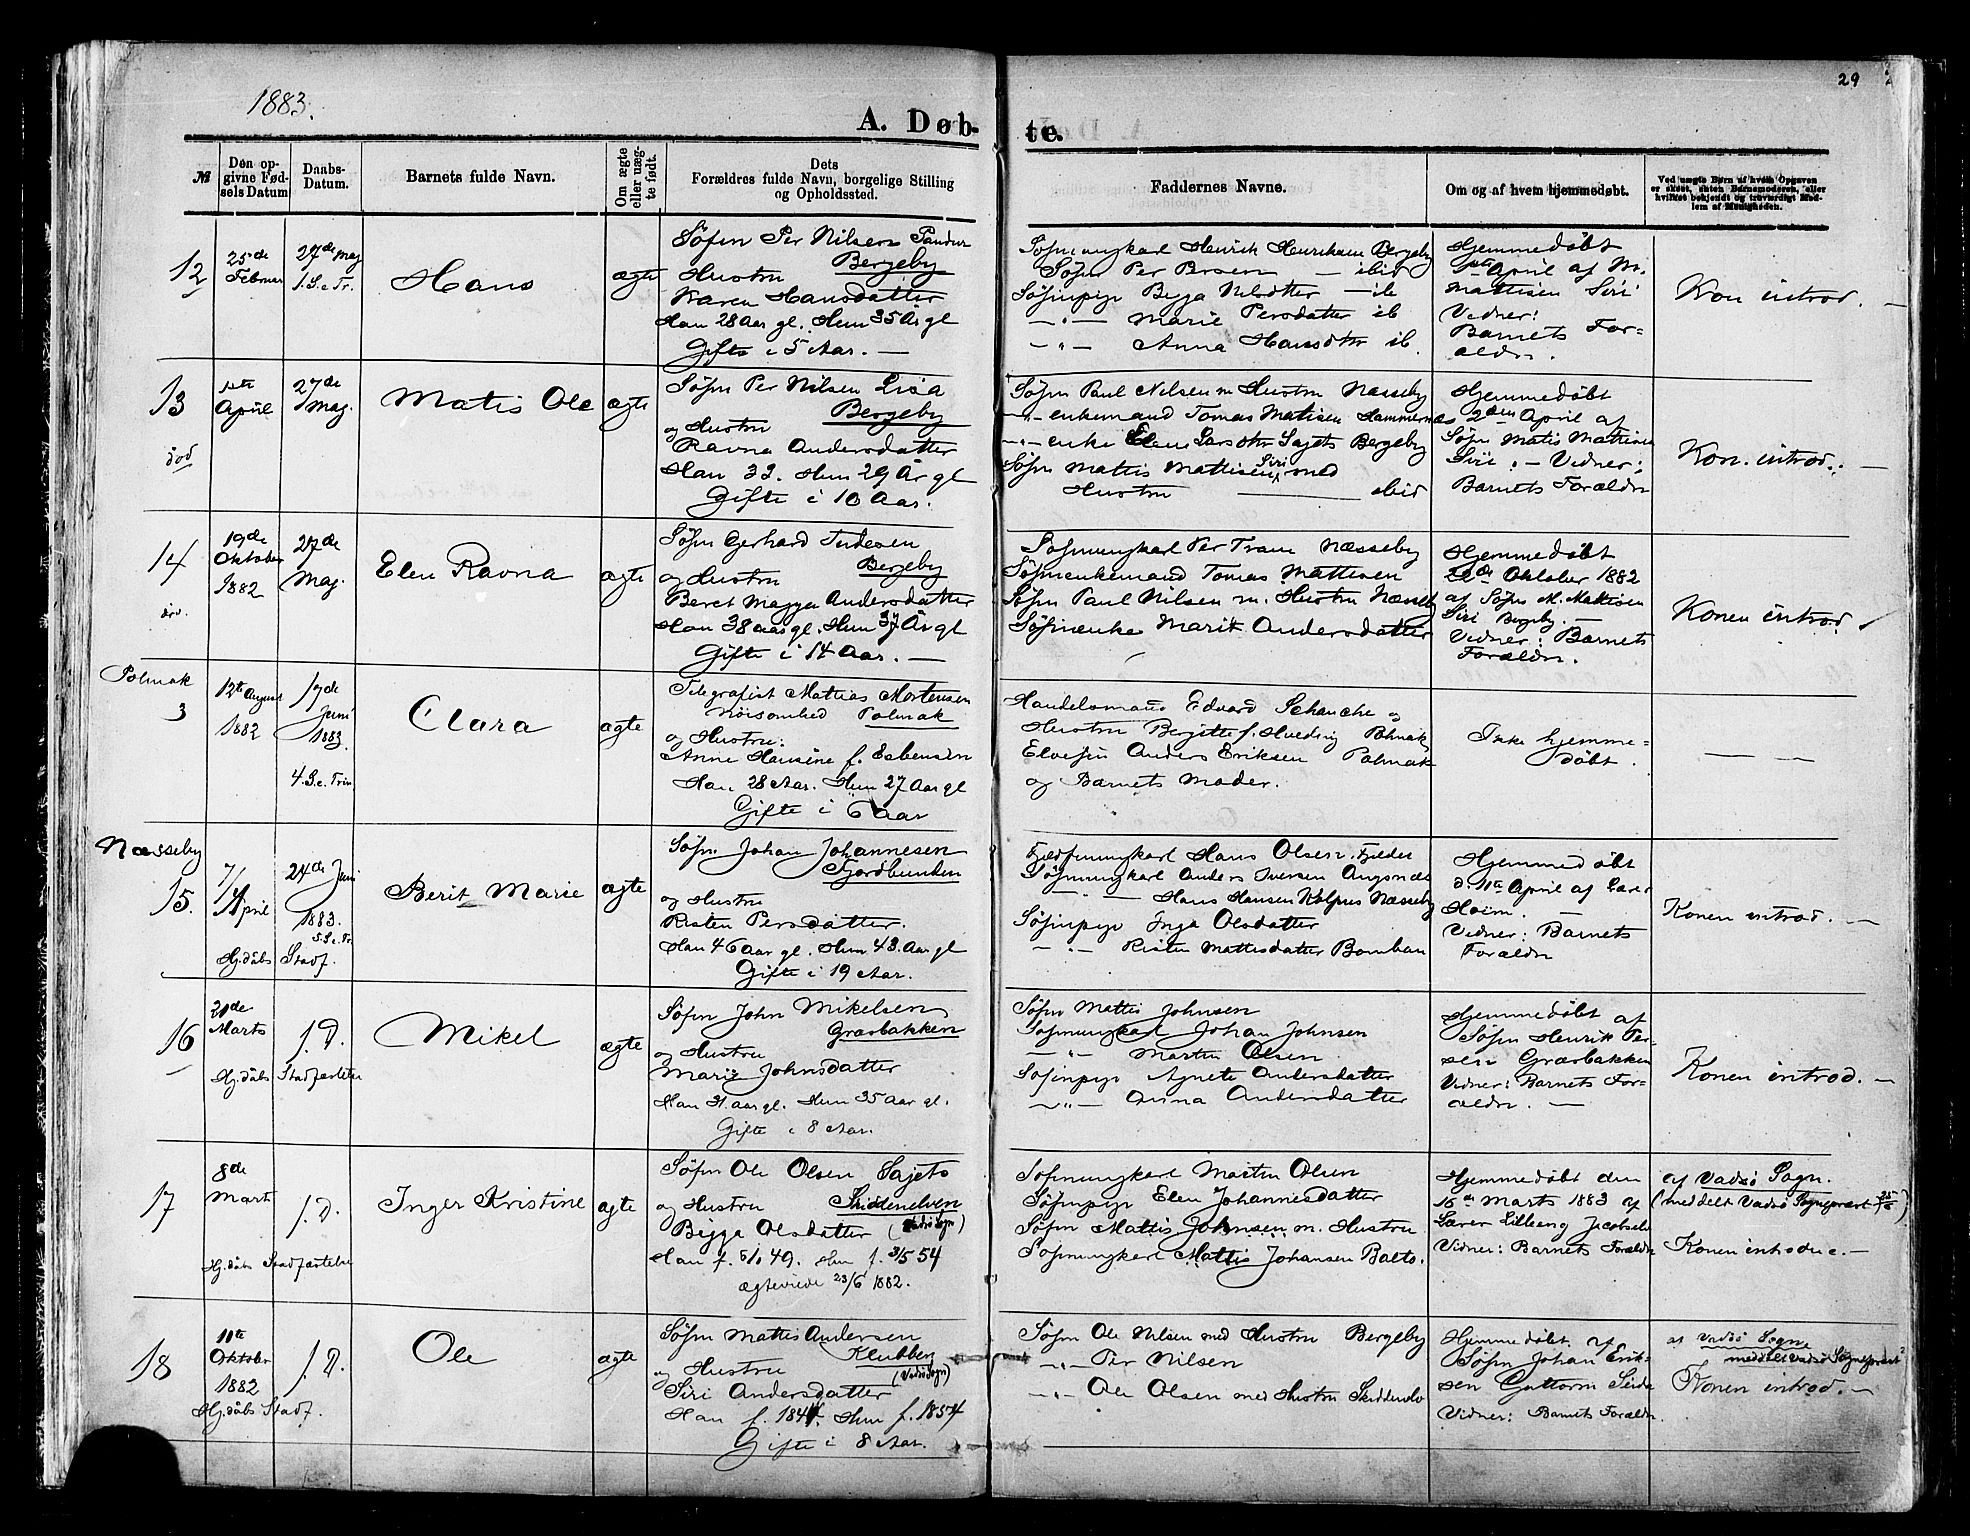 29
1883.
A. Døb-
te.
№
Den op-
givne Fød-
sels Datum
Daabs-
Datum.
Barnets fulde Navn.
Om ægte
eller uæg-
te født.
Dets
Forældres fulde Navn, borgelige Stilling
og Opholdssted.
Faddernes Navne.
Om og af hvem hjemmedøbt.
Ved uægte Børn af hvem Opgaven
er skeet, enten Barnemoderen, eller
hvilket bekjendt og troværdigt Med-
lem af Menigheden.
12
25de
Februar
27de Maj
1.S.e.Tr.
Hans
ægte
Søfin Per Nilsen
Bergeby
Hustru
Karen Hansdatter
Han 28 Aar gl. Hun 35 År gl
Gifte i 5 Aar. —
Søfinungkarl Henrik Henriksen Bergeby
Søfin Per Persen — ibid
Søfinpige Bigga Nilsdtter — ib
— " — Marie Persdatter ib
— " — Anna Hansdtr ib.
Hjemmedøbt
1ste April af M.
Mattisen Siri
Vidner:
Barnets For=
ældre.
Kon introd. —
13
død
1ste
April
27de
Maj.
Matis Ole
ægte
Søfin Per Nilsen Lisa
Bergeby
og Hustru
Ravna Andersdatter
Han 33. Hun 29 År gl
Gifte i 10 Aar.
Søfin Paul Nilsen m Hustru Næsseby
— " — enkemand Tomas Matisen Hammernæs
— " — enke Elen Larsdtr Sajets Bergeby
Søfin Mattis Mattisen Siri med
Hustru — ibid
Hjemmedøbt
2den April af
Søfin Matis Mattisen
Siri. — Vidner:
Barnets Forældre
Kon. introd. —
14
død.
19de
Oktober
1882
27de
Maj.
Elen Ravna
ægte
Søfin Gerhard
Bergeby
og Hustru
Beret Magga Andersdatter
Han 38 aar gl. Hun 37 År gl
Gifte i 14 Aar. —
Søfinungkarl Per Trane Næsseby
Søfinenkemand Tomas Mattisen
Søfin Paul Nilsen m. Hustru Næsseby
Søfinenke Marit Andersdatter
Hjemmedøbt
Oktober 1882
af Søfin M. Mattisen
Siri Bergeby. —
Vidner: Barnets
Forældre.
Konen introd.
Polmak
3
12te August
1882
17de
Juni
1883.
4.S.e.Trin
Clara
ægte
Telegrafist Mathias Mortensen
Nøisomhed Polmak
og Hustru:
Anne Hansine f. Esbensen
Han 28 Aar. Hun 27 Aar gl
Gifte i 6 Aar
Handelsmand Edvard Schanche og
Hustru Bergitte f. Hveding Polmak
Elvefin Anders Eriksen Polmak
og Barnets Moder.
Ikke hjemme=
døbt.
— —
Næsseby
15.
7/
April
Hj.døbt
24de Juni
1883.
5.S.e.Tr.
Stadf.
Berit Marie
ægte
Søfin Johan Johannesen
Fjordbunden
og Hustru
Risten Persdatter.
Han 46 Aar gl. Hun 43. Aar gl
Gifte i 19 Aar.
Fjeldfinungkarl Hans Olsen
Søfinungkarl Anders Iversen Angsnæs
— " — Hans Hansen Kolpus Næsseby
Søfinpige Inga Olsdatter
— " — Risten Mattisdatter Bomban
Hjemmedøbt
d. 11te April af Lærer
Holm. —
Vidner: Barnets
Forældre
Konen introd. —
16
Marts
Hj.døbt
f. D.
Stadfæstelse
Mikel
ægte
Søfin John Mikelsen
Græsbakken
og Hustru
Marie Johnsdatter
Han 31. aar gl. Hun 35 Aar gl.
Gifte i 8 Aar.
Søfin Mattis Johnsen
Søfinungkarl Johan Johnsen
— " — Morten Olsen
Søfinpige Agnete Andersdatter
— " — Anna Andersdatter
Hjemmedøbt af
Søfin Henrik Per-
sen Græsbakken
Vidner: Barnets For=
ældre. —
Konen introd. —
17
8de
Marts
Hj.døbt
f. D.
Stadfæstelse
Inger Kristine
ægte
Søfin Ole Olsen Sajets
og Hustru Skiddenelven
(Vadsø Sogn)
Bigga Olsdatter
Han f. 49. Hun f. 3/5 54
ægteviede 23/6 1882.
Søfinungkarl Morten Olsen
Søfinpige Elen Johannesdatter
Søfin Mattis Johnsen m. Hustru
Søfinungkarl Mattis Johansen Balto.
Hjemmedøbt den
Marts 1883 af
Lærer Lilleeng Jacobselv
Vidner: Barnets Forældre
af Vadsø Sogn.
(meddelt Vadsø Sognepræst)
Konen introd. —
18
Oktober
1882
Hj.døbt
f. D.
Stadf.
Ole
ægte
Søfin Mattis Andersen
Klubberg
og Hustru (Vadsø Sogn)
Siri Andersdatter
Han f. 1844. Hun f. 1854
Gifte i 8 Aar.
Søfin Ole Nilsen med Hustru Bergeby
— " — Per Nilsen
— " — Ole Olsen med Hustru Skiddenelv
Hjemmedøbt af
Søfin Johan Erik-
sen Guttorm Seida
Vidner: Barnets Forældre.
af Vadsø Sogn
meddelt Vadsø Sognepræst
Konen introd. —